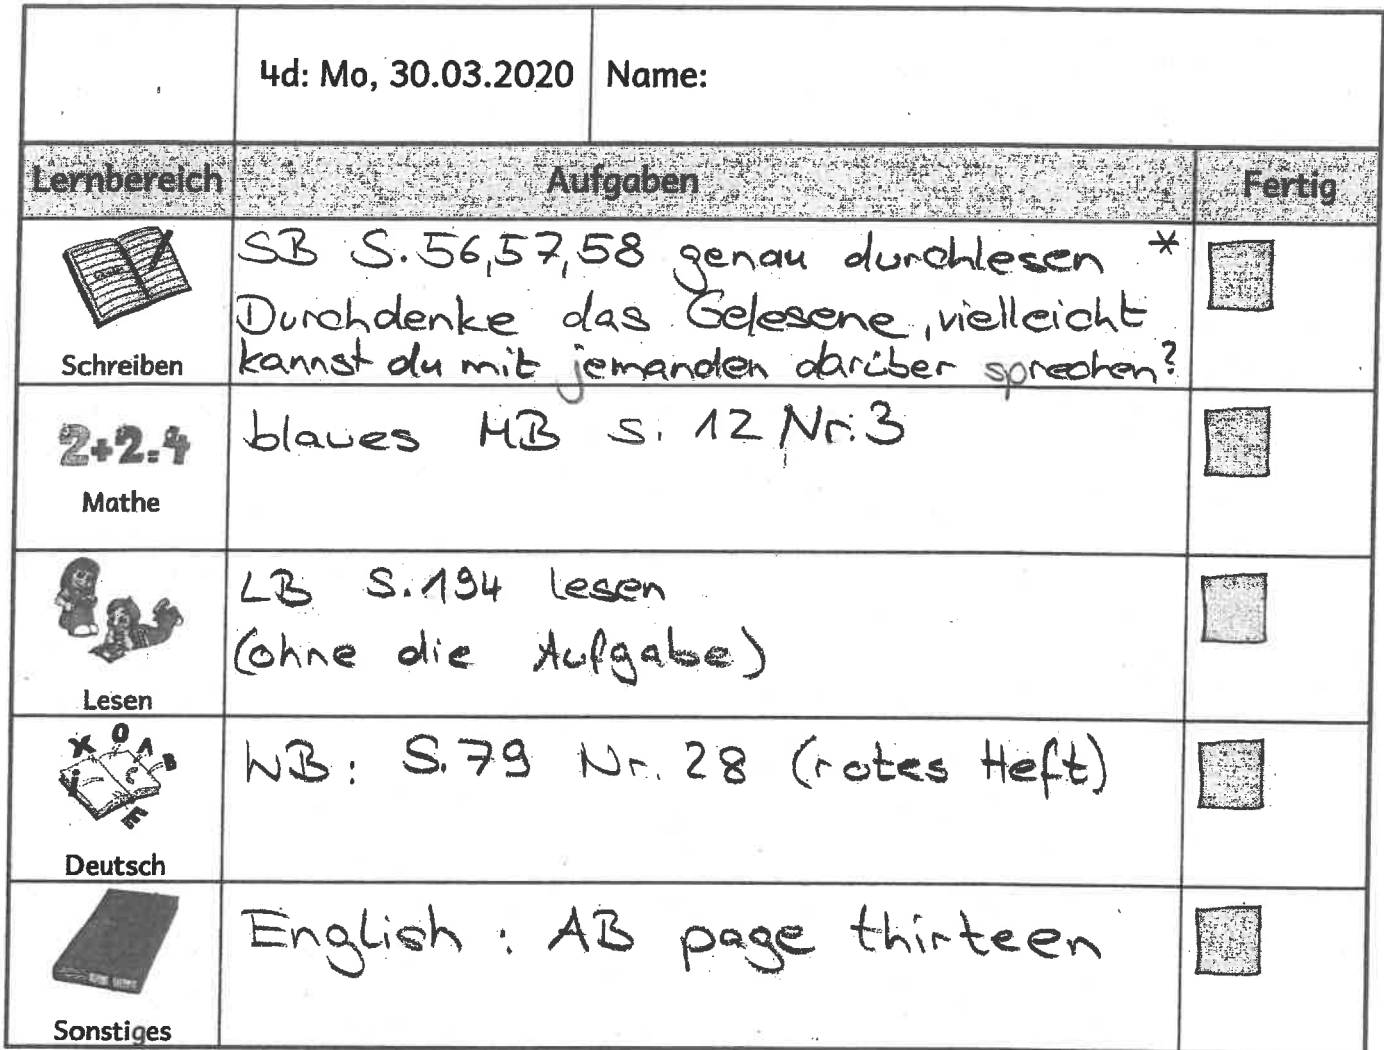 4d: Mo, 30.03.2020 Name:
Lernbereich Aufgaben Fertig
SB S.56,57,58 genau durchlesen *
Durchdenke das Gelesene, vielleicht
kannst du mit jemanden darüber sprechen?
Schreiben
blaues MB S. 12 Nr. 3
2+2=4
Mathe
LB S.194 lesen
(ohne die Aufgabe)
Lesen
WB: S.79 Nr. 28 (rotes Heft)
X O A B
i C E
Deutsch
English : AB page thirteen
Sonstiges